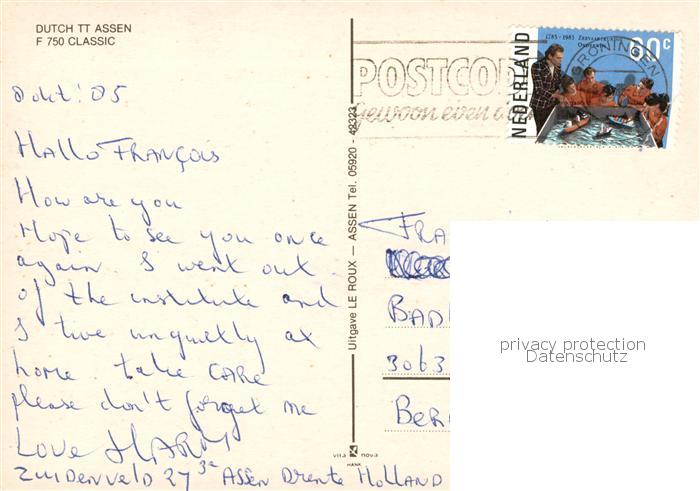 DUTCH TT ASSEN
F 750 CLASSIC
1785-1985 ZEEVAARTKUNDIG
ONDERWIJS
60c
NEDERLAND
GRONINGEN
POSTCO
gewoon even
okt '85
HALLO FRANÇOIS
How are you
Hope to see you once
again I went out
of the institute and
I live unquietly at
home. take CARE
please don't forget me
LOVE HARM
ZUIDENVELD 27 3e ASSEN DRENTE HOLLAND
Uitgave LE ROUX — ASSEN Tel. 05920 - 42323
vita nova
HANK
FRA
BAD
3063
BER
privacy protection
Datenschutz